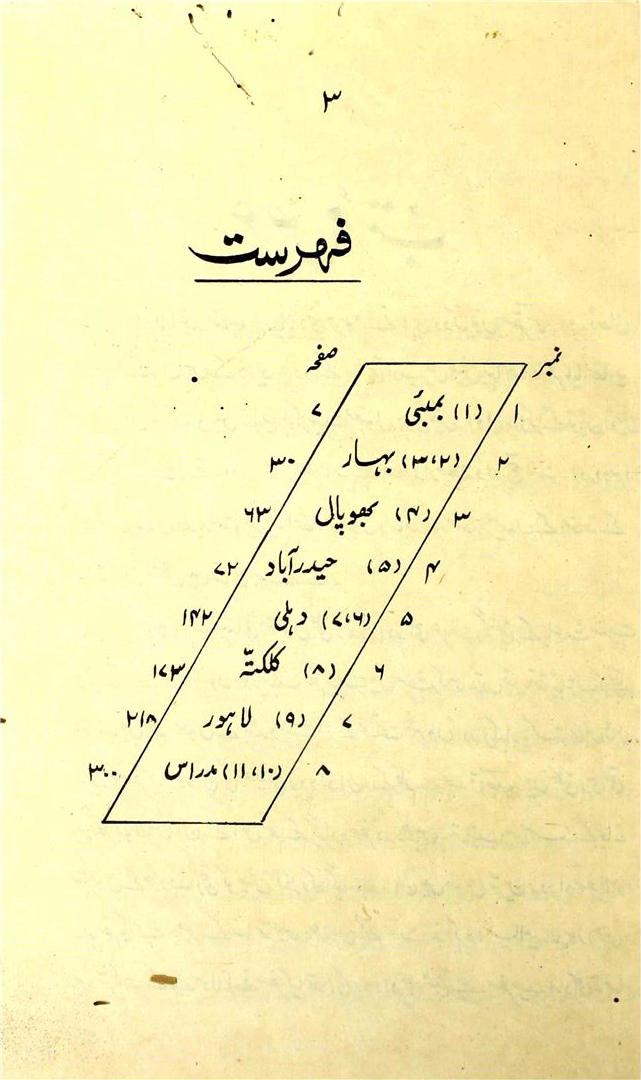 ۳
فہرست
نمبر صفحہ
۱ (۱) بمبئی ۷
۲ (۲،۳) بہار ۳۰
۳ (۴) بھوپال ۶۳
۴ (۵) حیدرآباد ۷۲
۵ (۶،۷) دہلی ۱۴۲
۶ (۸) کلکتّہ ۱۷۳
۷ (۹) لاہور ۲۱۸
۸ (۱۰،۱۱) مدراس ۳۰۰